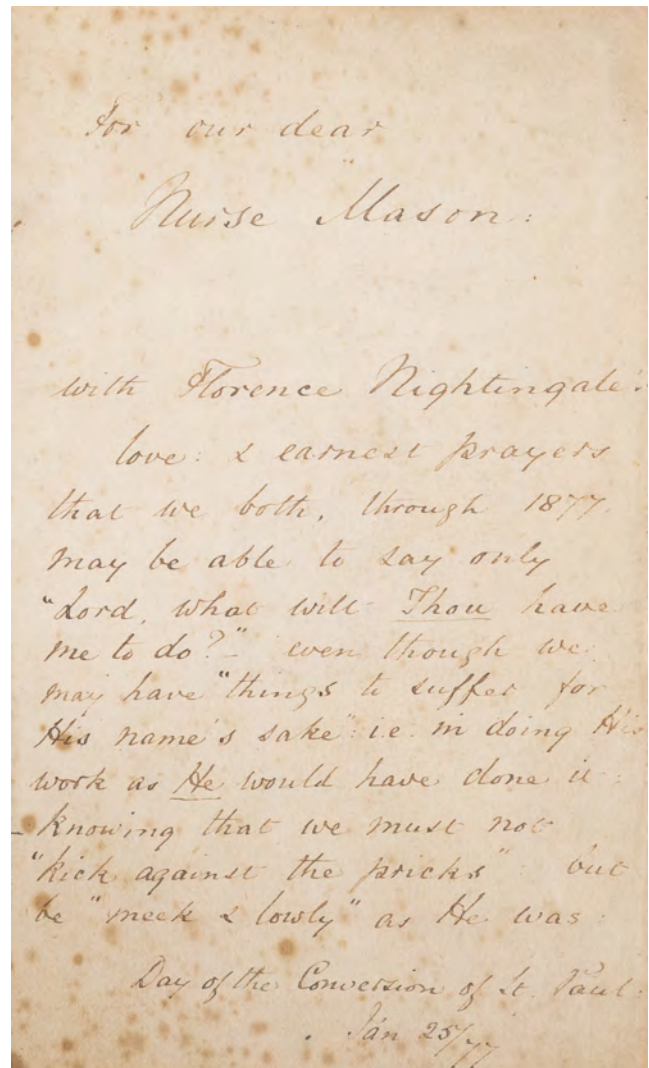 For our dear
Nurse Mason:
with Florence Nightingale's
love: & earnest prayers
that we both, through 1877
may be able to say only
"Lord, what wilt Thou have
me to do?" - even though we
may have "things to suffer for
His name's sake" i.e. in doing His
work as He would have done it:
- knowing that we must not
"kick against the pricks": but
be "meek & lowly" as He was:
Day of the Conversion of St. Paul:
Jan 25/77